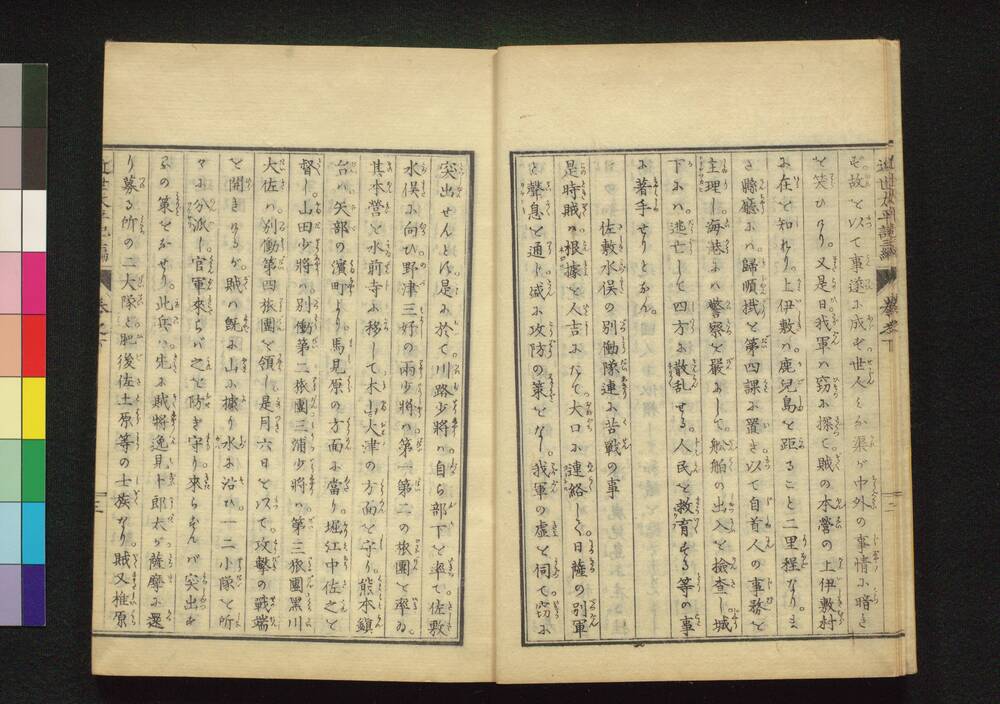 も故を以て事遂に成らず世人其渠が中外の事情に暗き
を笑ひけり。又是日我軍ハ窃に探て賊の本營の上伊敷村
に在を知れり。上伊敷ハ鹿児島を距ること二里程なり。
縣廳にハ歸順掛を第四課に置き以て自首人の事務を
主理し海巷にハ警察を嚴にして舩舶の出入を檢査し城
下にハ逃亡して四方に散乱せる人民を救育する等の事
に着手せりとなん。
佐敷水俣の別働隊連に苦戰の事
是時賊ハ根據を人吉に占て大口に連絡し日薩の別軍
と聲息を通じ盛に攻防の策をなし我軍の虚を伺て窃に
突出せんとす是に於て川路少將ハ自ら部下を率て佐敷
水俣に向ひ野津三好の両少將ハ第一第二の旅團を率ゐ
其本營を水前寺に移して木山大津の方面を守り熊本鎮
台ハ矢部の濱町より馬見原の方面に當り堀江中佐之を
督し山田少將ハ別働第二旅團三浦少將ハ第三旅團黒川
大佐ハ別働第四旅團を領し是月六日を以て攻撃の戰端
を開きけるが賊ハ既に山に據り水に沿ひ一二小隊を所
々に分派し官軍來らバ之を防ぎ守り來らずんバ突出
るの策をなせり。此兵ハ先に賊將逸見十郎太が薩摩に還
り募る所の二大隊と肥後佐土原等の士族なり。賊又椎原